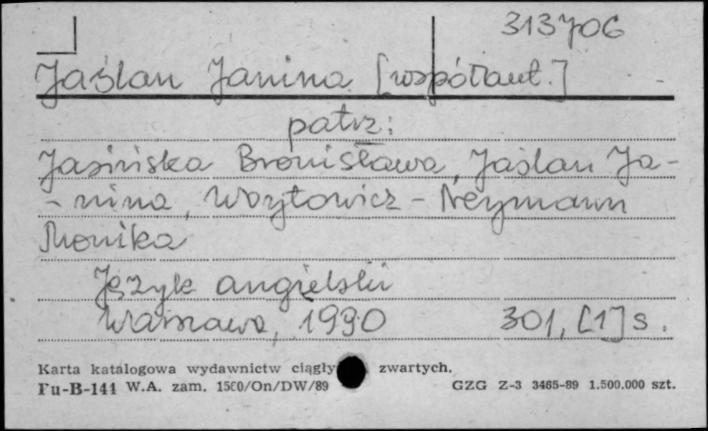 313706
Jaślan Janina [współaut.]
patrz:
Jasińska Bronisława, Jaślan Ja-
- nina, Woytowicz - Neymann
Monika
Język angielski
Warszawa, 1990 301, [1] s.
Karta katalogowa wydawnictw ciągły zwartych.
Pu-B-141 W.A. zam. 1560/On/DW/89 GZG Z-3 3465-89 1.500.000 szt.